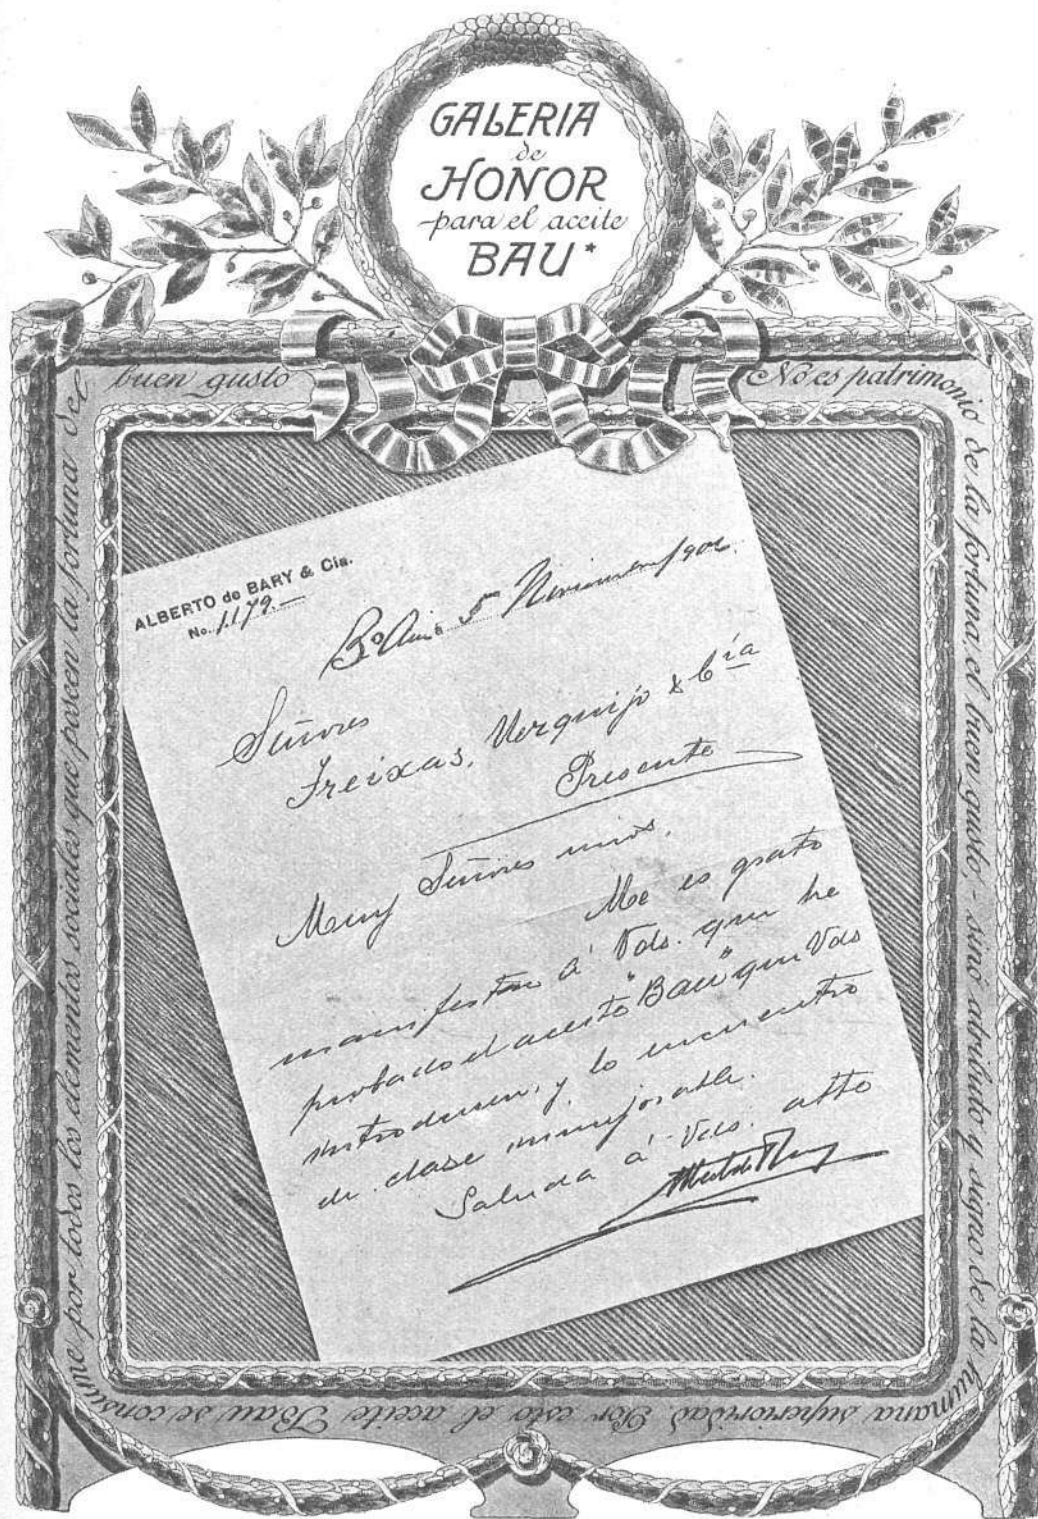 GALERIA
de
HONOR
para el aceite
BAU*
No es patrimonio de la fortuna, el buen gusto, - sinó atributo y signo de la humana superioridad. Por esto el aceite Bau se consume por todos los elementos sociales que poseen la fortuna del buen gusto
ALBERTO de BARY & Cía.
No. 1179.-
Bs Aires 5 Noviembre/90
Señores
Freixas, Urquijo & Cía
Presente
Muy Señores mios.
Me es grato
manifestar á Vds. que he
probado el aceite "Bau" que Vds
introducen, y lo encuentro
de clase inmejorable.
Saluda á Vds. atto